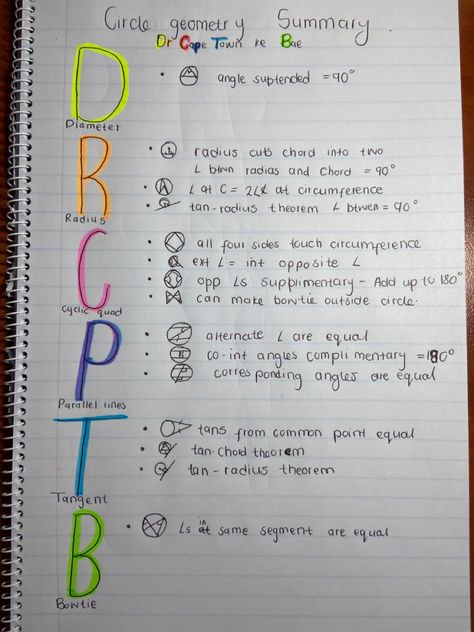 Circle geometry Summary.
Dr Cape Town ke Bae
D
Diameter
angle subtended = 90°
R
Radius
radius cuts chord into two
∠ btwn radias and chord = 90°
∠ at C = 2∠ at circumference
tan-radius theorem ∠ btwen = 90°
C
Cyclic quad
all four sides touch circumference
ext ∠ = int opposite ∠
opp ∠s supplimentary - Add up to 180°
can make bowtie outside circle.
P
Parallel lines
alternate ∠ are equal
co-int angles complimentary = 180°
corresponding angles are equal
T
Tangent
tans from common point equal
tan-chord theorem
tan - radius theorem
B
Bowtie
∠s in same segment are equal